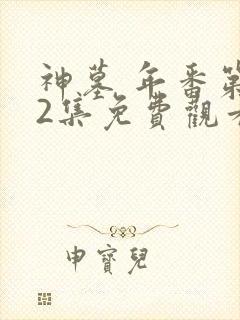 神墓 年番第
2集免費觀看
申寶兒